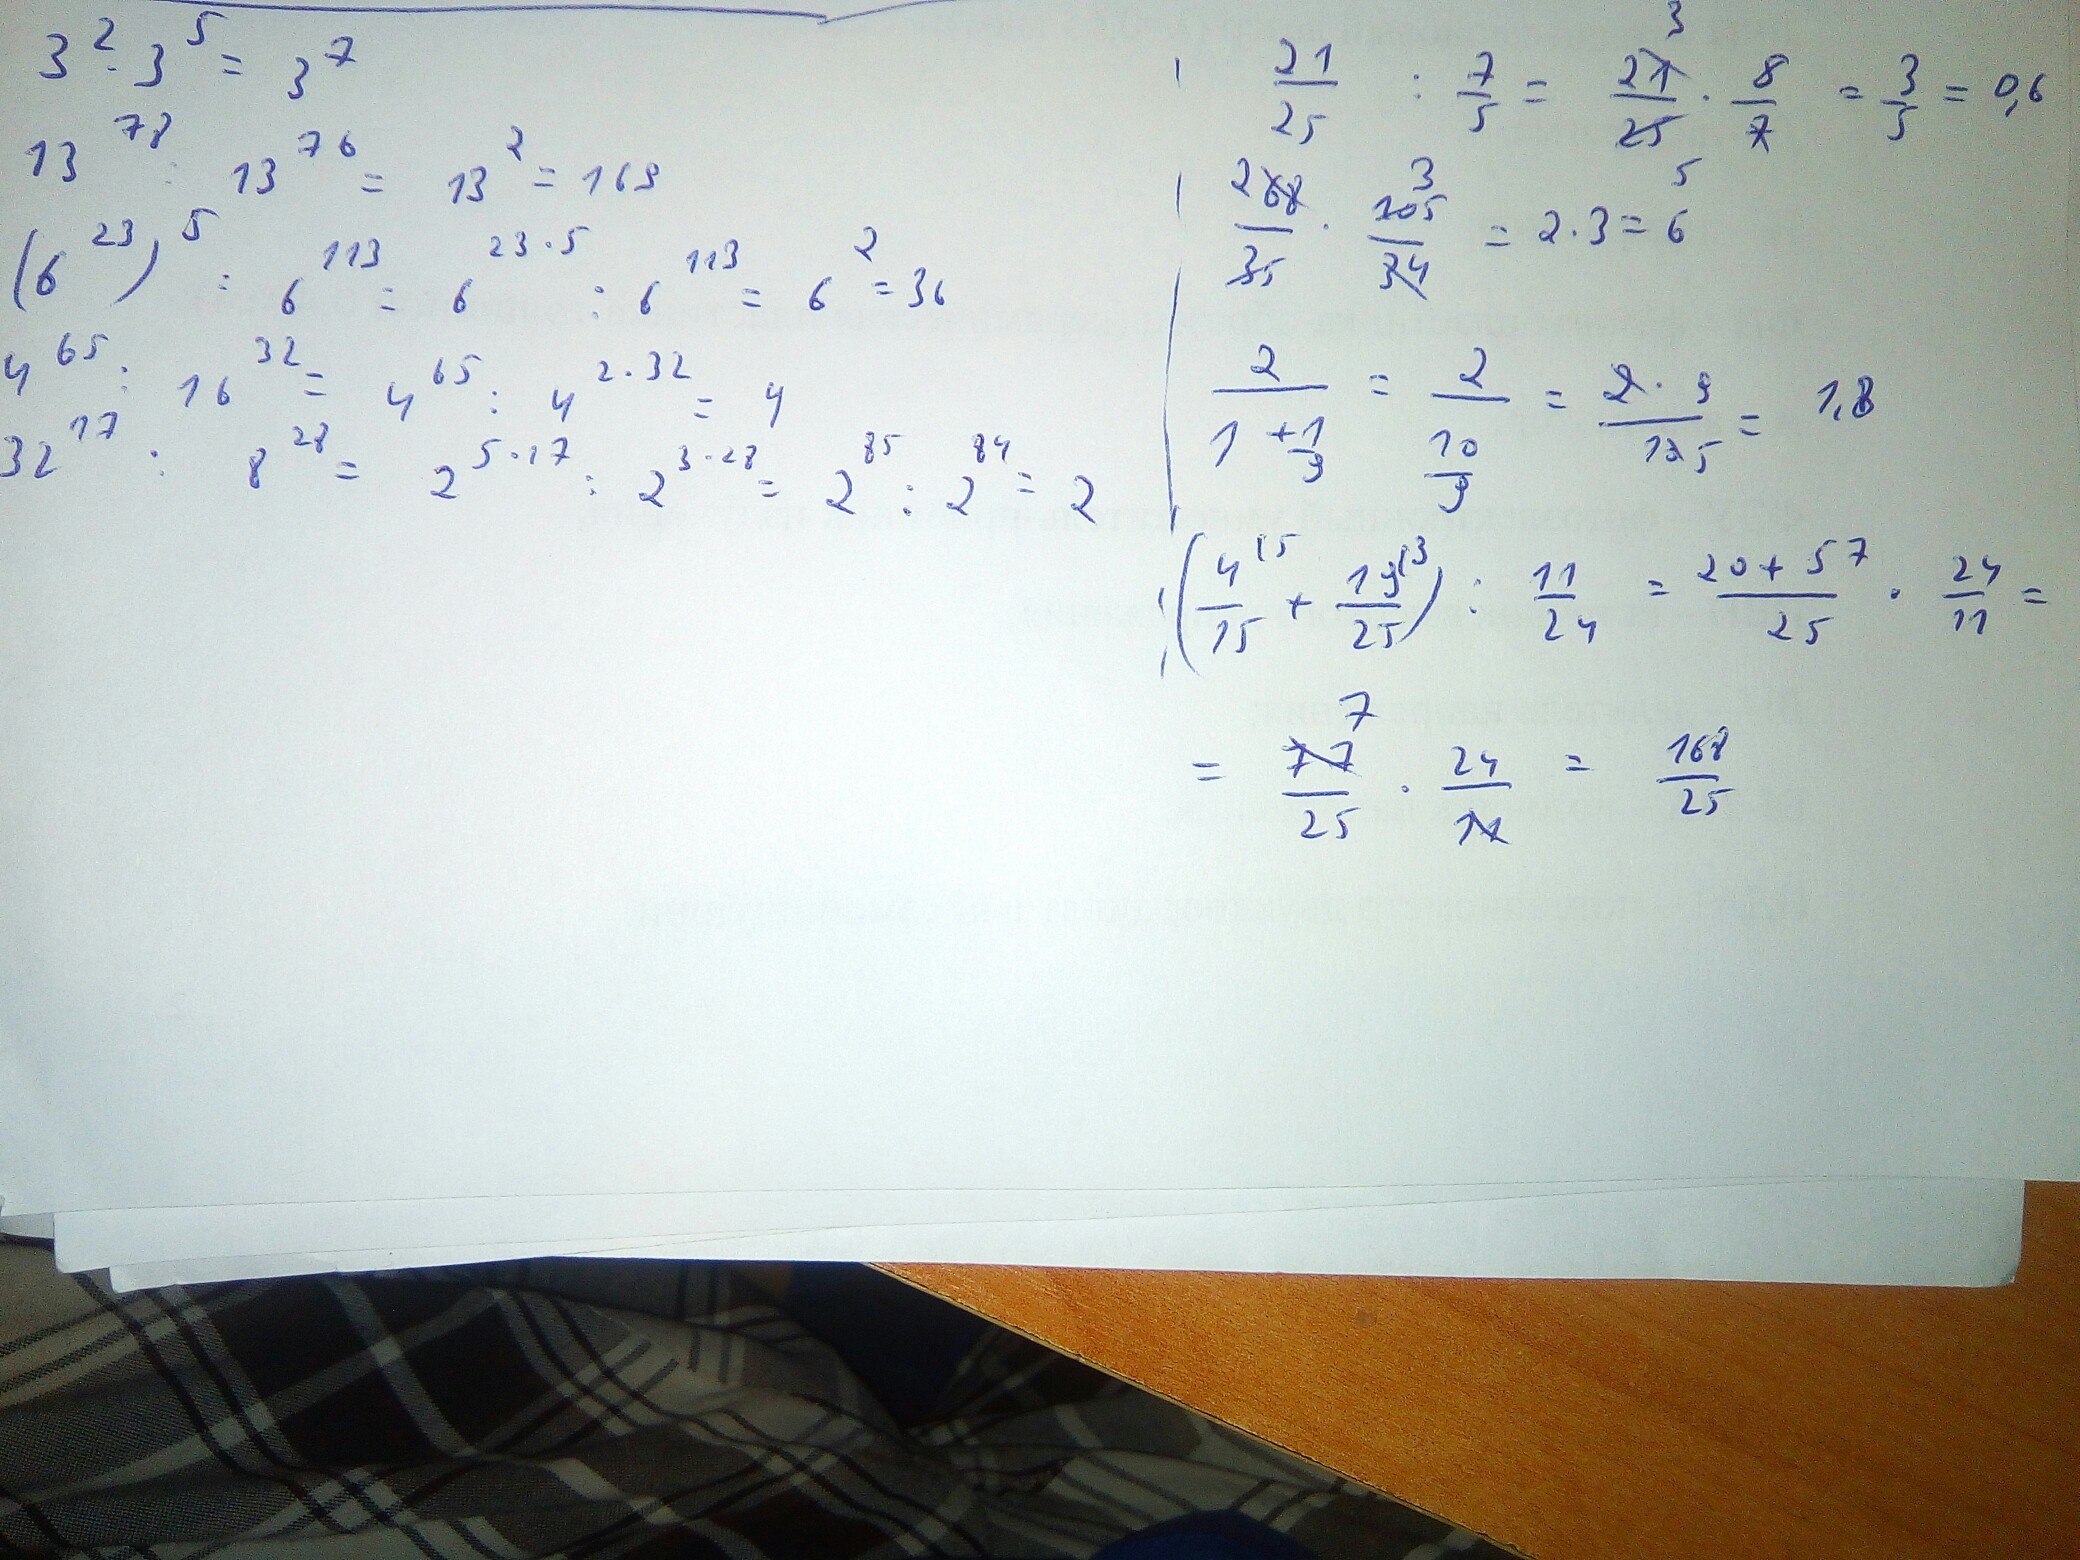 3² · 3⁵ = 3⁷
13⁷⁸ : 13⁷⁶ = 13² = 169
(6²³)⁵ : 6¹¹³ = 6²³·⁵ : 6¹¹³ = 6² = 36
4⁶⁵ : 16³² = 4⁶⁵ : 4²·³² = 4
32¹⁷ : 8²⁸ = 2⁵·¹⁷ : 2³·²⁸ = 2⁸⁵ : 2⁸⁴ = 2
21/25 : 7/5 = 21/25 · 8/7 = 3/5 = 0,6
3
5
2 68/35 · 105/34 = 2·3 = 6
3
2/(1+1/9) = 2/(10/9) = 2·9/10 5 = 1,8
(4/15 |5 + 19/25 |3) : 11/24 = 20+57/25 · 24/11 =
= 77/25 · 24/11 = 168/25
7